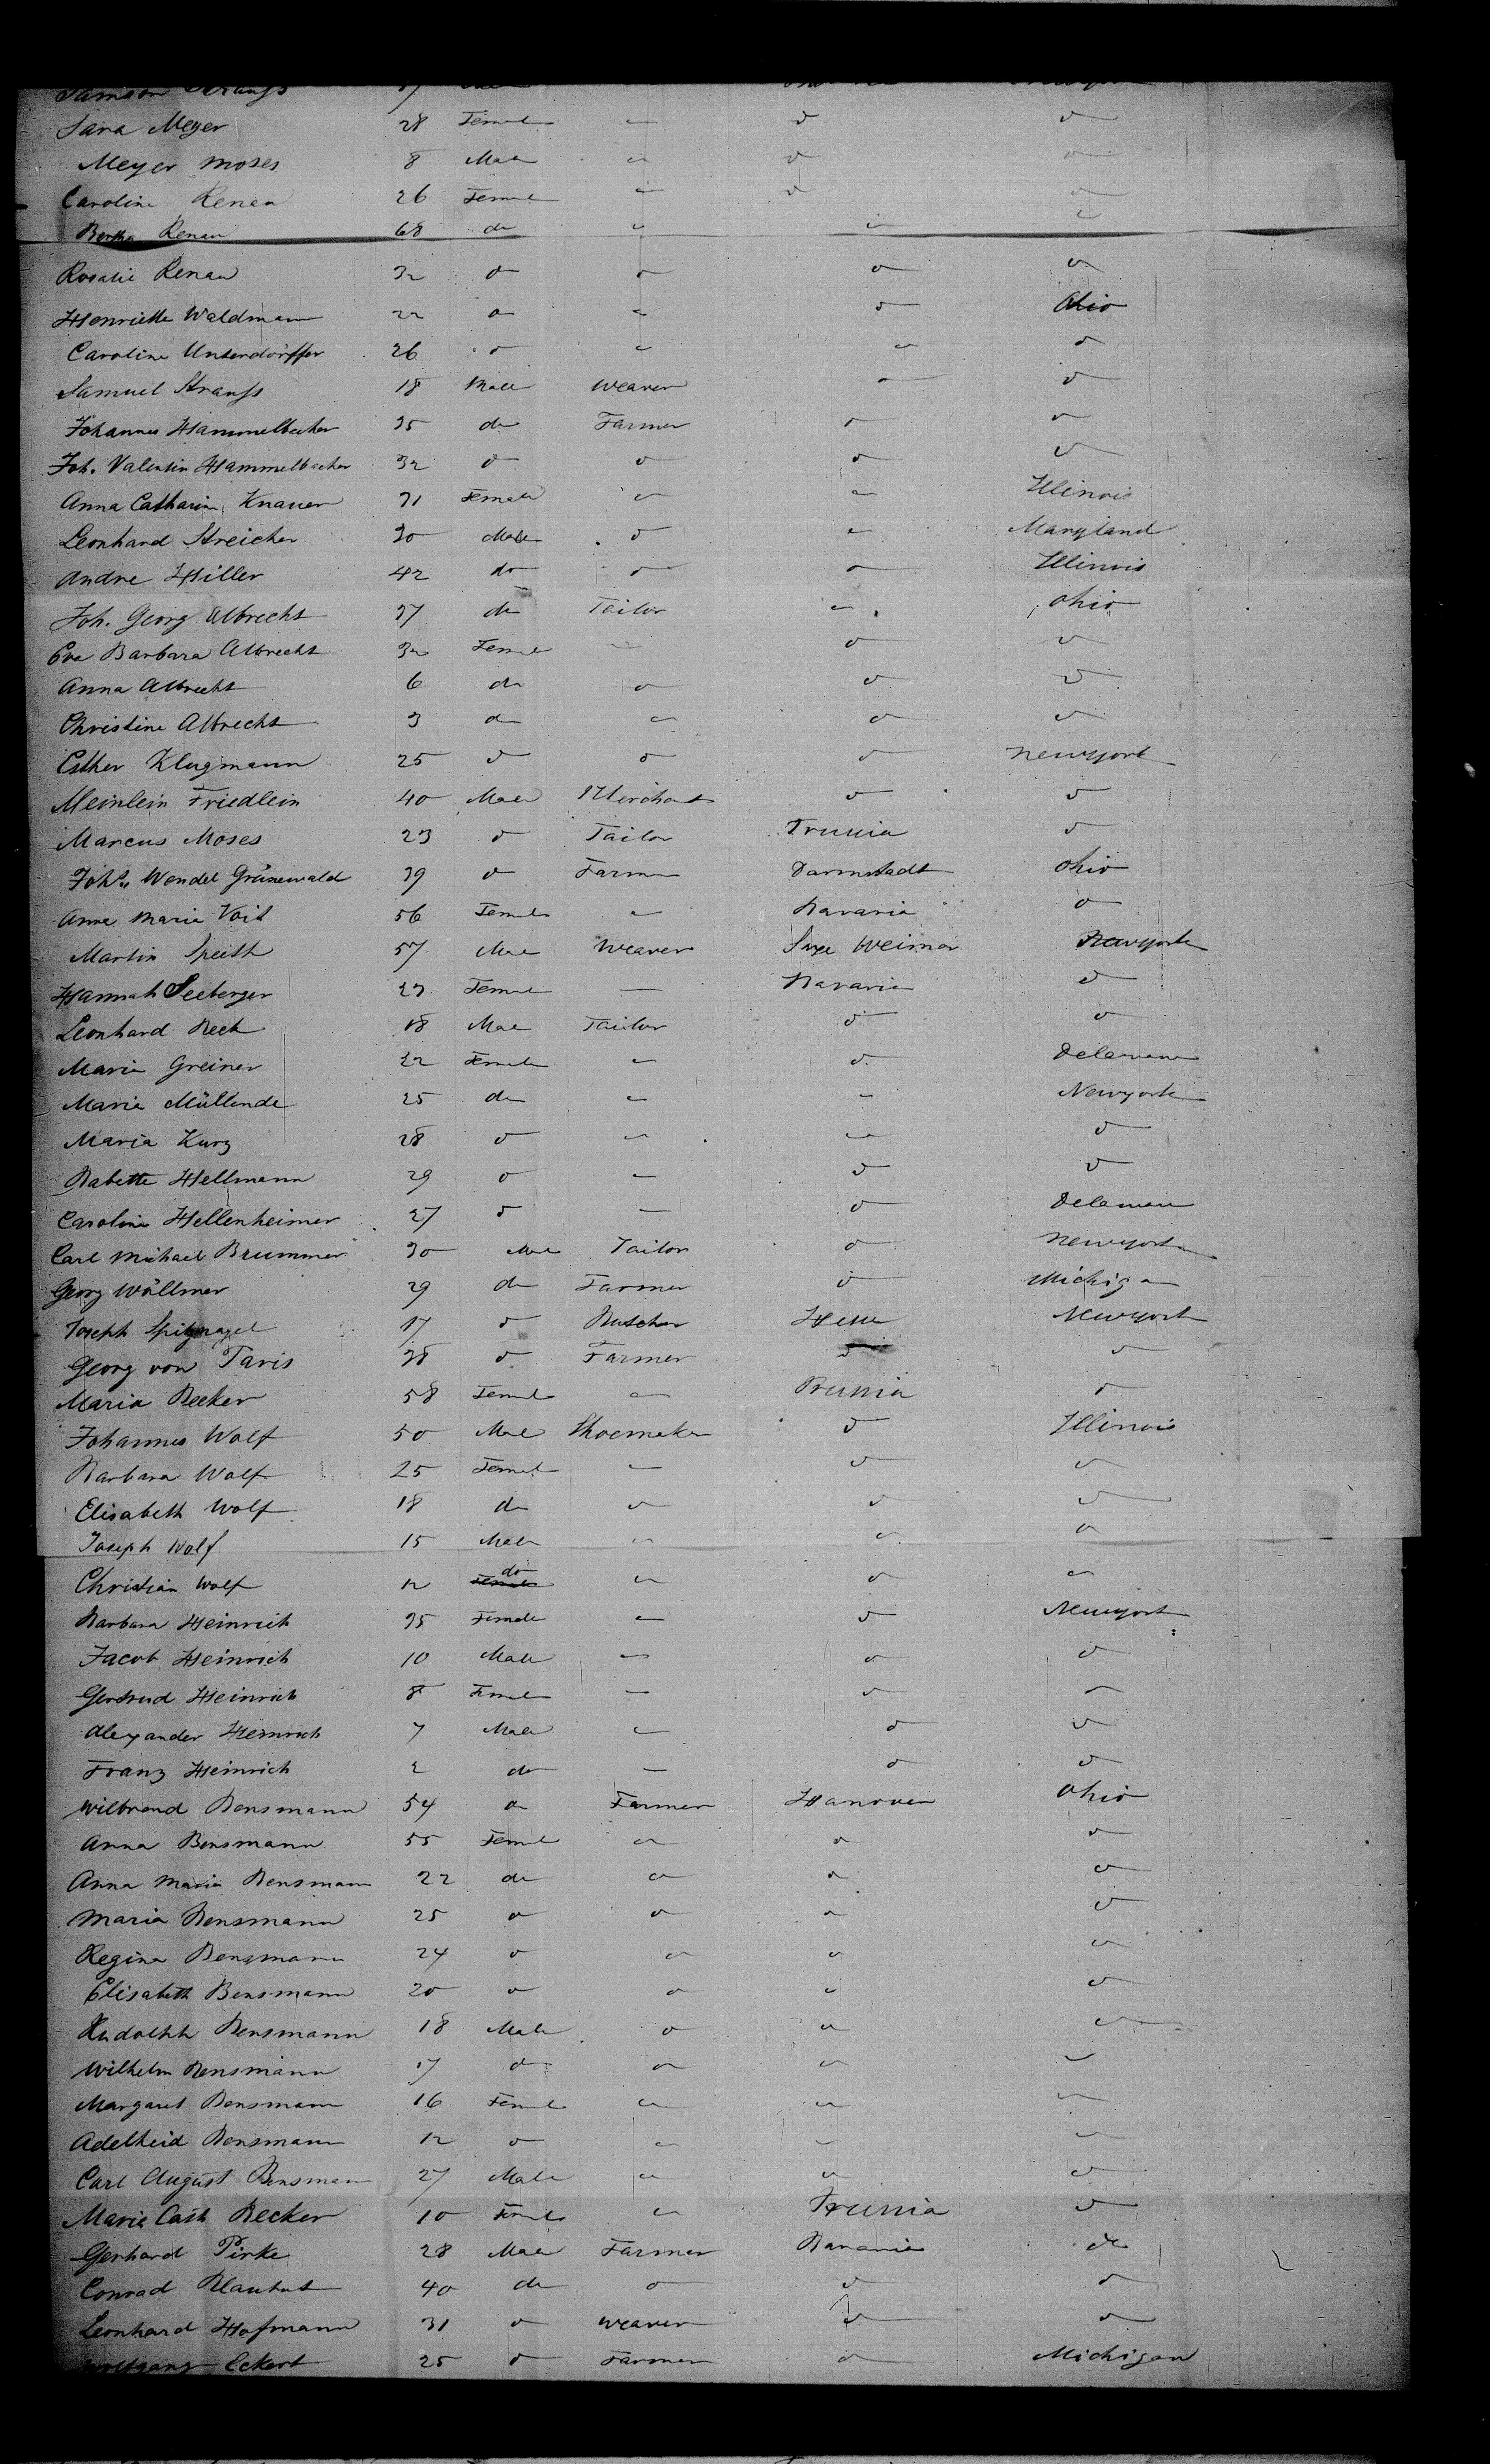 Samson Strauss 37 Male
Sara Meyer 28 Female " " "
Meyer Moses 8 Male " " "
Caroline Renau 26 Female " " "
Bertha Renau 68 do " " "
Rosalie Renau 32 " " " "
Henriette Waldmann 22 " " " Ohio
Caroline Unterdörffer 26 " " " "
Samuel Strauss 18 Male Weaver " "
Johannes Hammelbacher 35 do Farmer " "
Joh. Valentin Hammelbacher 32 " " " "
Anna Catharin Knauer 31 Female " " Illinois
Leonhard Streicher 30 Male " " Maryland
Andre Hiller 42 do " " Illinois
Joh. Georg Albrecht 37 do Tailor " Ohio
Eva Barbara Albrecht 32 Female " " "
Anna Albrecht 6 do " " "
Christine Albrecht 3 do " " "
Esther Klugmann 25 " " " Newyork
Meinlein Friedlein 40 Male Merchant " "
Marcus Moses 23 " Tailor Prussia "
Johs. Wendel Grünewald 39 " Farmer Darmstadt Ohio
Anna Maria Voit 56 Female " Bavaria "
Martin Speith 57 Male Weaver Saxe Weimar Newyork
Hannah Seeberger 23 Female — Bavaria "
Leonhard Beck 18 Male Tailor " "
Maria Greiner 22 Female " " Delaware
Maria Müllende 25 do " " Newyork
Maria Kurz 28 " " " "
Babette Hellmann 29 " — " "
Caroline Hellenheimer 27 " — " Delaware
Carl Michael Brummer 30 Male Tailor " Newyork
Georg Wöllmer 29 do Farmer " Michigan
Joseph Spitznagel 17 " Butcher Hesse Newyork
Georg von Taris 38 " Farmer " "
Maria Becker 58 Female " Prussia "
Johannes Wolf 50 Male Shoemaker " Illinois
Barbara Wolf 25 Female — " "
Elisabeth Wolf 18 do " " "
Joseph Wolf 15 Male " " "
Christian Wolf 12 do " " "
Barbara Heinrich 35 Female " " Newyork
Jacob Heinrich 10 Male " " "
Gertrud Heinrich 8 Female — " "
Alexander Heinrich 7 Male " " "
Franz Heinrich 2 do — " "
Wilbrand Bensmann 54 " Farmer Hanover Ohio
Anna Bensmann 55 Female " " "
Anna Maria Bensmann 22 do " " "
Maria Bensmann 25 " " " "
Regina Bensmann 24 " " " "
Elisabeth Bensmann 20 " " " "
Rudolph Bensmann 18 Male " " "
Wilhelm Bensmann 17 do " " "
Margaret Bensmann 16 Female " " "
Adelheid Bensmann 12 " " " "
Carl August Bensmann 27 Male " " "
Maria Cath Becker 10 Female " Prussia "
Gerhard Pirke 28 Male Farmer Bavaria do
Conrad Blauhut 40 do " " "
Leonhard Hofmann 31 " Weaver " "
Wolfgang Eckert 25 " Farmer " Michigan